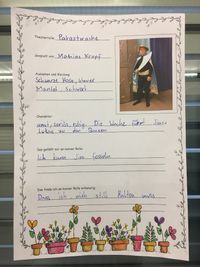 Theaterrolle: Palastwache
Gespielt von: Mathias Krapf
Aussehen und Kleidung:
Schwarze Hose, blauer
Mantel, Schwert
Charakter:
ernst, seriös, ruhig. Die Wache führt Jim
Lukas zu den
Das gefällt mir an meiner Rolle:
Ich kann Jim fesseln
Das finde ich an meiner Rolle schwierig:
Dass ich mich still halten muss